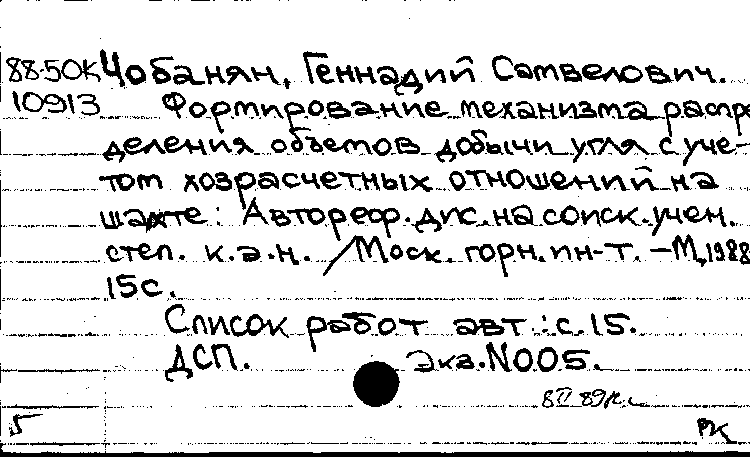 88-50К Чобанян, Геннадий Самвелович.
10913 Формирование механизма распре
деления объемов добычи угля с уче-
том хозрасчетных отношений на
шахте: Автореф. дис. на соиск. учен.
степ. к.э.н. /Моск. горн. ин-т. -М, 1988
15с.
Список работ авт.: с. 15.
ДСП. Экз. N005.
89к.
5 РК